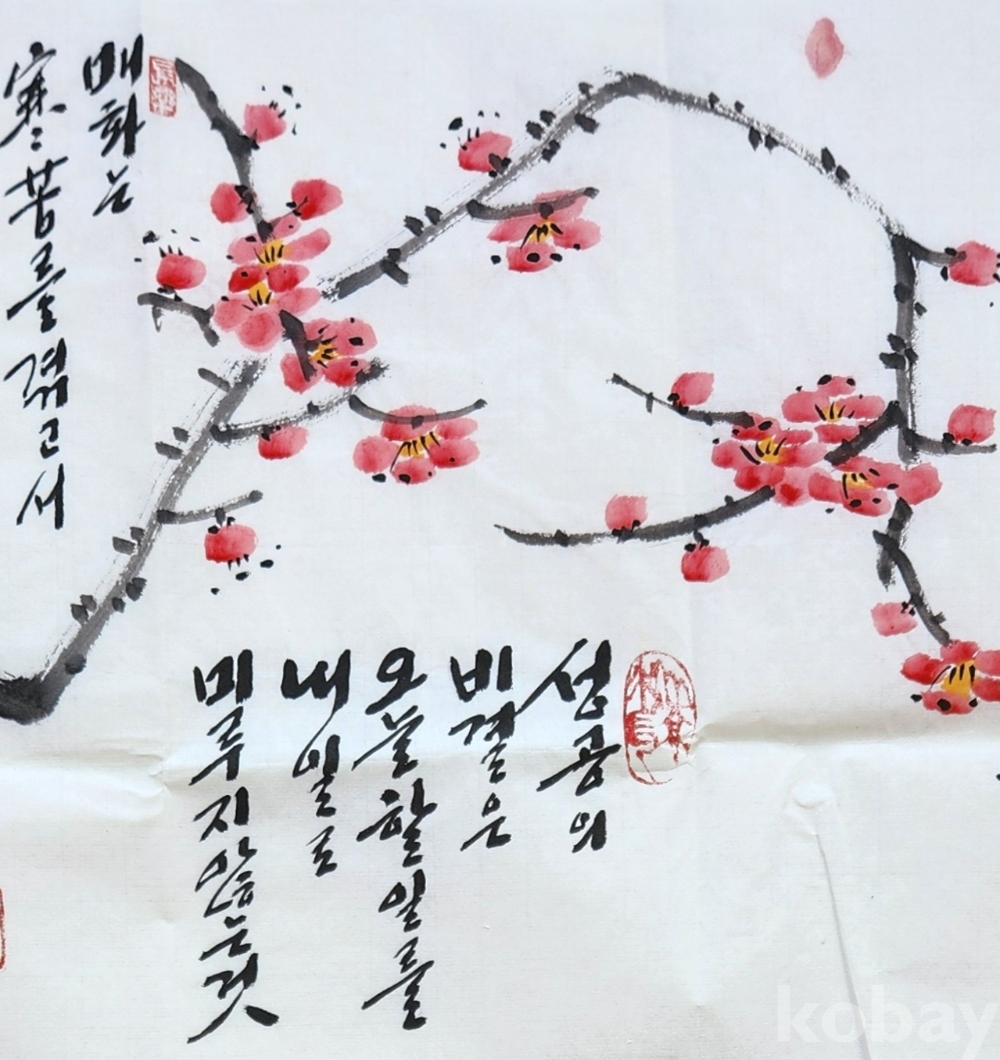 매화는
寒苦를 겪고서
성공의
비결은
오늘 할 일을
내일로
미루지 않는 것
kobay